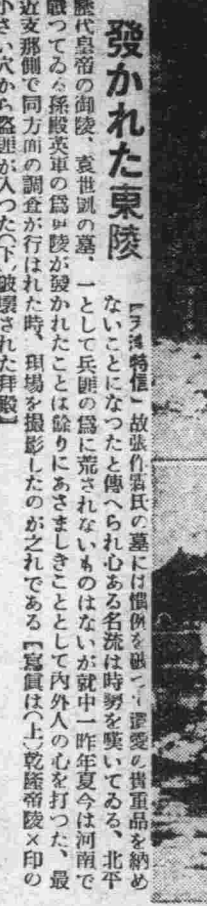 發かれた東陵
【天津特信】故張作霖氏の墓には慣例を破つて遺愛の貴重品を納め
ないことになつたと傳へられ心ある名流は時勢を嘆いてゐる、北平
歷代皇帝の御陵、袁世凱の墓、一として兵匪の爲に荒されないものはないが就中一昨年夏今は河南で
戰つてゐる孫殿英軍の爲東陵が發かれたことは餘りにあさましきこととして內外人の心を打つた、最
近支那側で同方面の調査が行はれた時、現場を撮影したのが之れである【寫眞は(上)乾隆帝陵×印の
小さい穴から盜匪が入つた(下)破壞された拜殿】